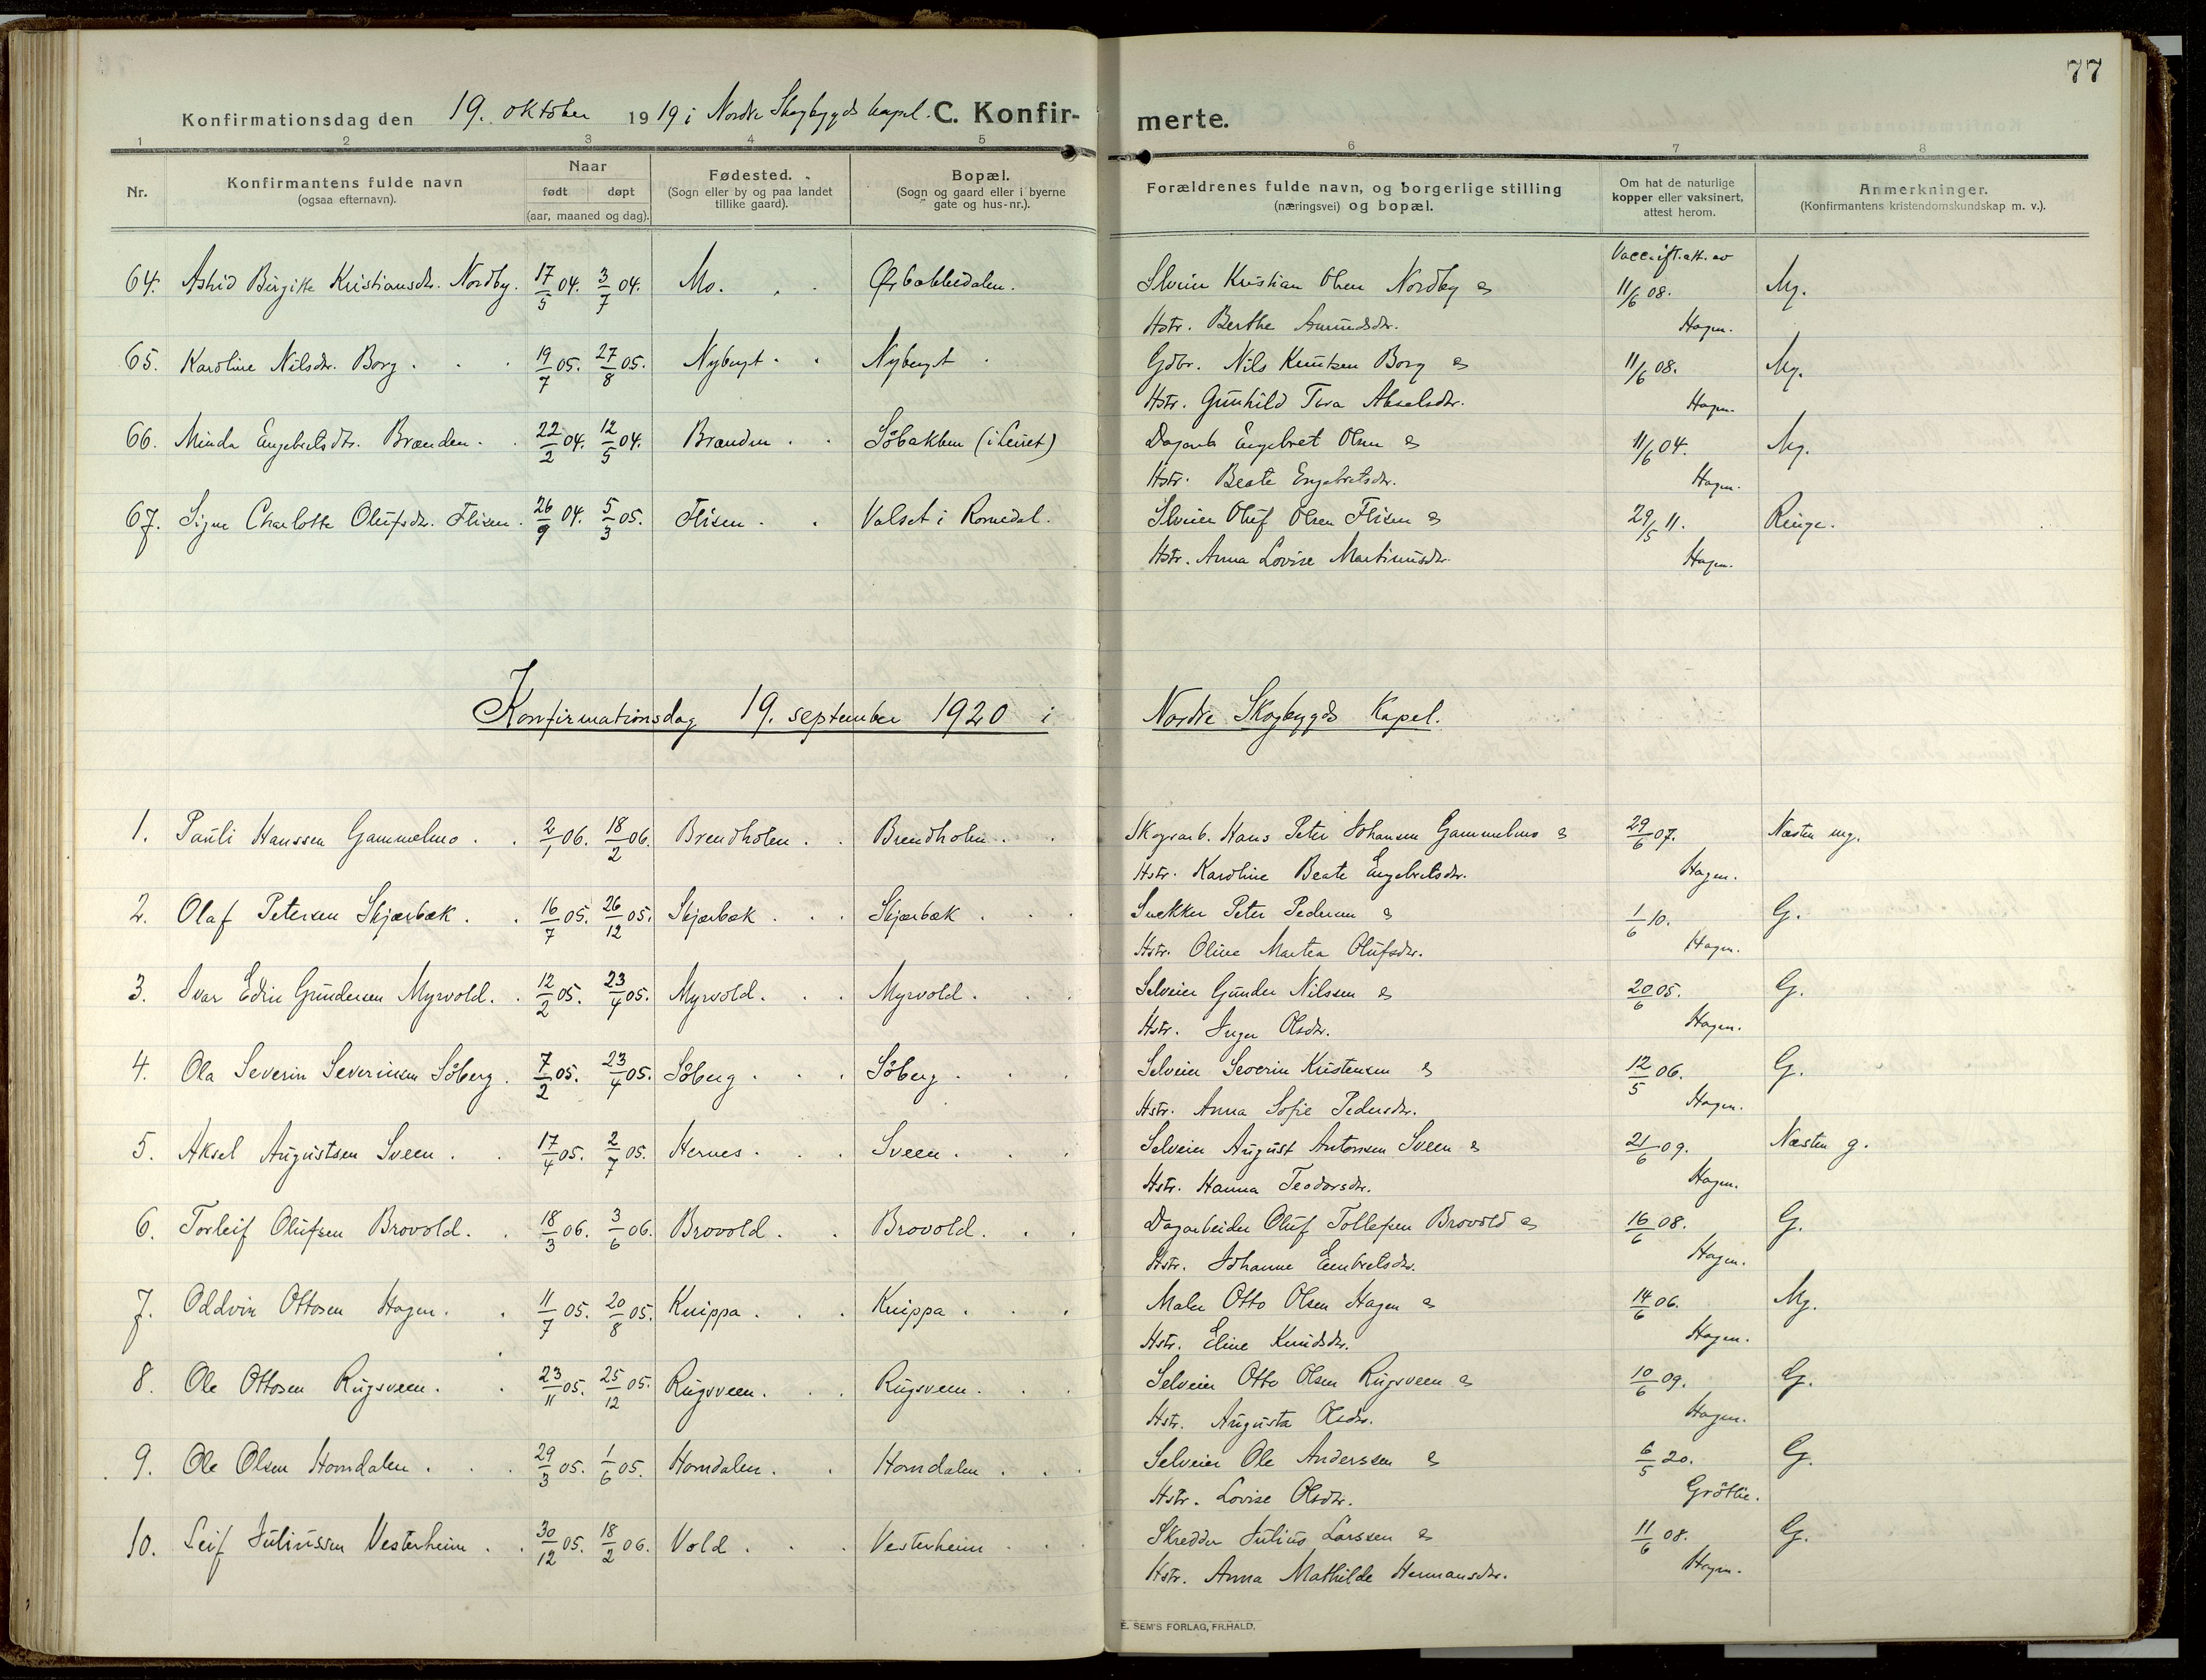 77
Konfirmationsdag den 19. oktober 1919 i Nordre Skogbygds kapel. C. Konfirmerte.
1 2 3 4 5 6 7 8
Nr. Konfirmantens fulde navn (ogsaa efternavn). Naar født døpt (aar, maaned og dag). Fødested. (Sogn eller by og paa landet tillike gaard). Bopæl. (Sogn og gaard eller i byerne gate og hus-nr.). Forældrenes fulde navn, og borgerlige stilling (næringsvei) og bopæl. Om hat de naturlige kopper eller vaksinert, attest herom. Anmerkninger. (Konfirmantens kristendomskundskap m. v.).
Vacc. ift. att. av
64. Astrid Birgitte Kristiansdtr. Nordby. 17/5 04. 3/7 04. Mo. Ørbækkedalen. Slveier Kristian Olsen Nordby & 11/6 08. Mg.
Hstr. Berthe Amundsdtr. Hagen.
65. Karoline Nilsdtr. Borg. 19/7 05. 27/8 05. Nybergt Nybergt Gdbr. Nils Knutsen Borg & 11/6 08. Mg.
Hstr. Gunhild Tora Akselsdtr. Hagen.
66. Minda Engebretsdtr. Brænden. 22/2 04. 12/5 04. Brænden. Söbakken (i Leiret) Dagarb. Engebret Olsen & 11/6 04. Mg.
Hstr. Beate Engebretsdtr. Hagen.
67. Signe Charlotte Olufsdtr. Flisen. 26/9 04. 5/3 05. Flisen. Valset i Romedal. Slveier Oluf Olsen Flisen & 29/5 11. Ringe.
Hstr. Anna Lovise Martinusdtr. Hagen.
Konfirmationsdag 19. september 1920 i Nordre Skogbygds Kapel.
1. Pauli Hanssen Gammelmo. 2/1 06. 18/2 06. Brendholen. Brendholen. Skogsarb. Hans Peter Johansen Gammelmo & 29/6 07. Næsten mg.
Hstr. Karoline Beate Engebretsdtr. Hagen.
2. Olaf Petersen Skjærbæk. 16/7 05. 26/12 05. Skjærbæk. Skjærbæk. Snekker Peter Pedersen & 1/6 10. G.
Hstr. Oline Martea Olufsdtr. Hagen.
3. Ivar Edin Gundersen Myrvold. 12/2 05. 23/4 05. Myrvold. Myrvold. Selveier Gunder Nilssen & 20/6 05. G.
Hstr. Inga Olsdtr. Hagen.
4. Ola Severin Severinsen Söberg. 7/2 05. 23/4 05. Söberg. Söberg. Selveier Severin Kristensen & 12/5 06. G.
Hstr. Anna Sofie Pedersdtr. Hagen.
5. Aksel Augustsen Sveen. 17/4 05. 2/7 05. Hernes. Sveen. Selveier August Antonsen Sveen & 21/6 09. Næsten g.
Hstr. Hanna Teodorsdtr. Hagen.
6. Torleif Olufsen Brovold. 18/3 06. 3/6 06. Brovold. Brovold. Dagarbeider Oluf Tollefsen Brovold & 16/6 08. G.
Hstr. Johanne Eenbretsdtr. Hagen.
7. Oddvin Ottosen Hagen. 11/7 05. 20/8 05. Knippa. Knippa. Maler Otto Olsen Hagen & 14/6 06. Mg.
Hstr. Eline Knudsdtr. Hagen.
8. Ole Ottosen Rugsveen. 23/11 05. 25/12 05. Rugsveen. Rugsveen. Selveier Otto Olsen Rugsveen & 10/6 09. G.
Hstr. Augusta Olsdtr. Hagen.
9. Ole Olsen Homdalen. 29/3 05. 1/6 05. Homdalen. Homdalen. Selveier Ole Anderssen & 6/5 20. G.
Hstr. Lovise Olsdtr. Gröttie.
10. Leif Juliussen Vesterheim. 30/12 05. 18/2 06. Vold. Vesterheim Skredder Julius Larssen & 11/6 08. G.
Hstr. Anna Mathilde Hermansdtr. Hagen.
E. SEM'S FORLAG, FR.HALD.